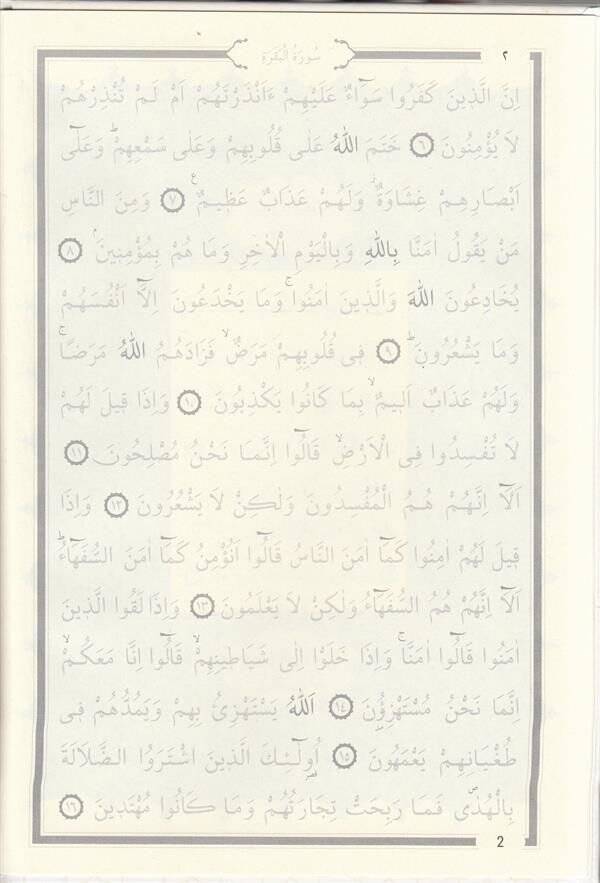 سُورَةُ الْبَقَرَةِ
٢
اِنَّ الَّذ۪ينَ كَفَرُوا سَوَٓاءٌ عَلَيْهِمْ ءَاَنْذَرْتَهُمْ اَمْ لَمْ تُنْذِرْهُمْ
لَا يُؤْمِنُونَ ﴿٦﴾ خَتَمَ اللّٰهُ عَلٰى قُلُوبِهِمْ وَعَلٰى سَمْعِهِمْۜ وَعَلٰٓى
اَبْصَارِهِمْ غِشَاوَةٌۘ وَلَهُمْ عَذَابٌ عَظ۪يمٌ۟ ﴿٧﴾ وَمِنَ النَّاسِ
مَنْ يَقُولُ اٰمَنَّا بِاللّٰهِ وَبِالْيَوْمِ الْاٰخِرِ وَمَا هُمْ بِمُؤْمِن۪ينَۢ ﴿٨﴾
يُخَادِعُونَ اللّٰهَ وَالَّذ۪ينَ اٰمَنُواۚ وَمَا يَخْدَعُونَ اِلَّٓا اَنْفُسَهُمْ
وَمَا يَشْعُرُونَۜ ﴿٩﴾ ف۪ي قُلُوبِهِمْ مَرَضٌۙ فَزَادَهُمُ اللّٰهُ مَرَضًاۚ
وَلَهُمْ عَذَابٌ اَل۪يمٌۙ بِمَا كَانُوا يَكْذِبُونَ ﴿١٠﴾ وَاِذَا ق۪يلَ لَهُمْ
لَا تُفْسِدُوا فِي الْاَرْضِۙ قَالُٓوا اِنَّمَا نَحْنُ مُصْلِحُونَ ﴿١١﴾
اَلَٓا اِنَّهُمْ هُمُ الْمُفْسِدُونَ وَلٰكِنْ لَا يَشْعُرُونَ ﴿١٢﴾ وَاِذَا
ق۪يلَ لَهُمْ اٰمِنُوا كَمَٓا اٰمَنَ النَّاسُ قَالُٓوا اَنُؤْمِنُ كَمَٓا اٰمَنَ السُّفَهَٓاءُۜ
اَلَٓا اِنَّهُمْ هُمُ السُّفَهَٓاءُ وَلٰكِنْ لَا يَعْلَمُونَ ﴿١٣﴾ وَاِذَا لَقُوا الَّذ۪ينَ
اٰمَنُوا قَالُٓوا اٰمَنَّاۚ وَاِذَا خَلَوْا اِلٰى شَيَاط۪ينِهِمْۙ قَالُٓوا اِنَّا مَعَكُمْۙ
اِنَّمَا نَحْنُ مُسْتَهْزِؤُ۫نَ ﴿١٤﴾ اَللّٰهُ يَسْتَهْزِئُ بِهِمْ وَيَمُدُّهُمْ ف۪ي
طُغْيَانِهِمْ يَعْمَهُونَ ﴿١٥﴾ اُو۬لٰٓئِكَ الَّذ۪ينَ اشْتَرَوُا الضَّلَالَةَ
بِالْهُدٰىۖ فَمَا رَبِحَتْ تِجَارَتُهُمْ وَمَا كَانُوا مُهْتَد۪ينَ ﴿١٦﴾
2